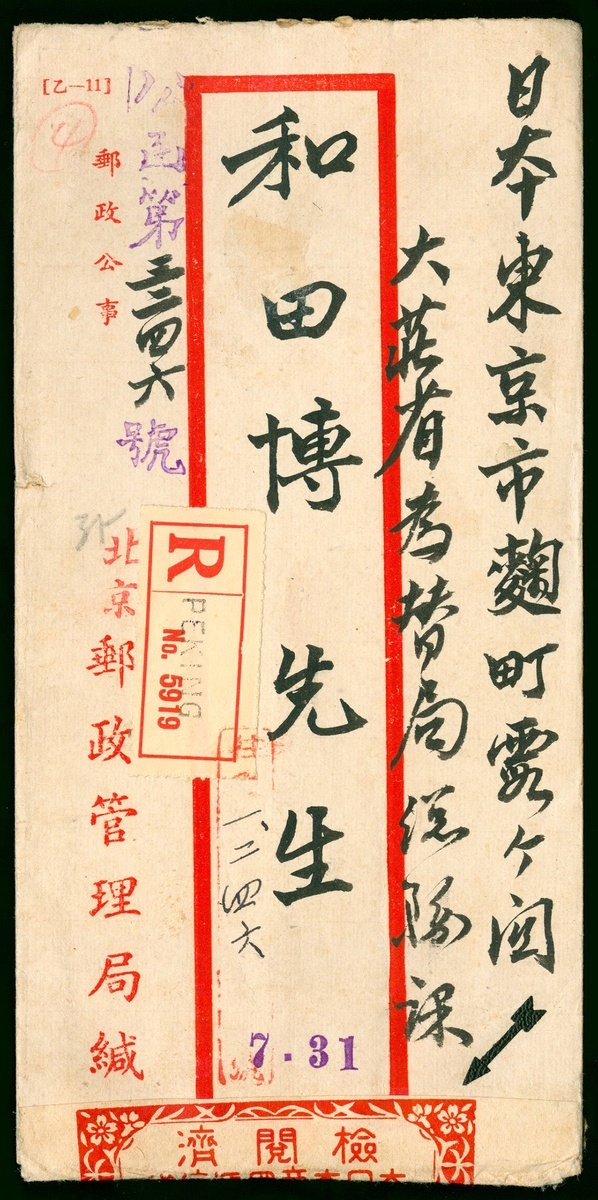 日本東京市麴町霞ヶ関
大蔵省為替局総務課
和田博先生
一、二四六
7.31
R
PEKING
No. 5919
函第三三四六號
[乙—11]
4
郵政公事
北京郵政管理局緘
檢閱濟